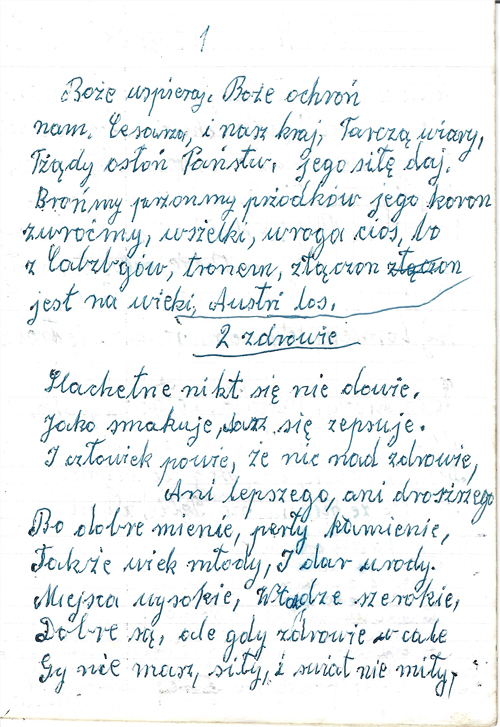 1
Boże wspieraj. Boże ochroń
nam. Cesarza, i nasz kraj, Tarczą wiary,
Tżądy osłoń Państw. jego siłę daj.
Brońmy przonmy pżodków jego koron
zwroćmy, wszelki, wroga cios, bo
z Cabzbgów, tronem, złączon złączon
jest na wieki, Austri los.
2 zdrowie
Slachetne nikt się nie dowie.
Jako smakuje, aż się zepsuje.
I człowiek powie, że nic nad zdrowie,
Ani lepszego, ani droższego
Bo dobre mienie, perły kamienie,
Także wiek młody, I dar urody.
Miejsca wysokie, Władze szerokie,
Dobre są, ale gdy zdrowie w cale
Gy nie masz, siły, i swiat nie miły,